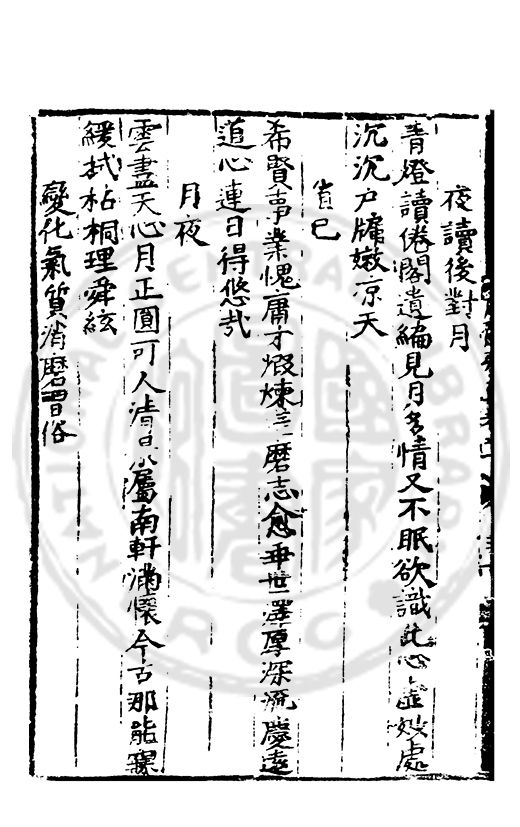 夜讀後對月
青燈讀倦閣遺編見月多情又不眠欲識此心虛妙處
沉沉戶牖嫩凉天
責已
希賢事業愧庸才煆煉磨志愈垂世澤厚深流慶遠
道心連日得悠哉
月夜
雲盡天心月正圓可人清景屬南軒滿懷今古那能寐
緩拭枯桐理舜絃
變化氣質消磨習俗